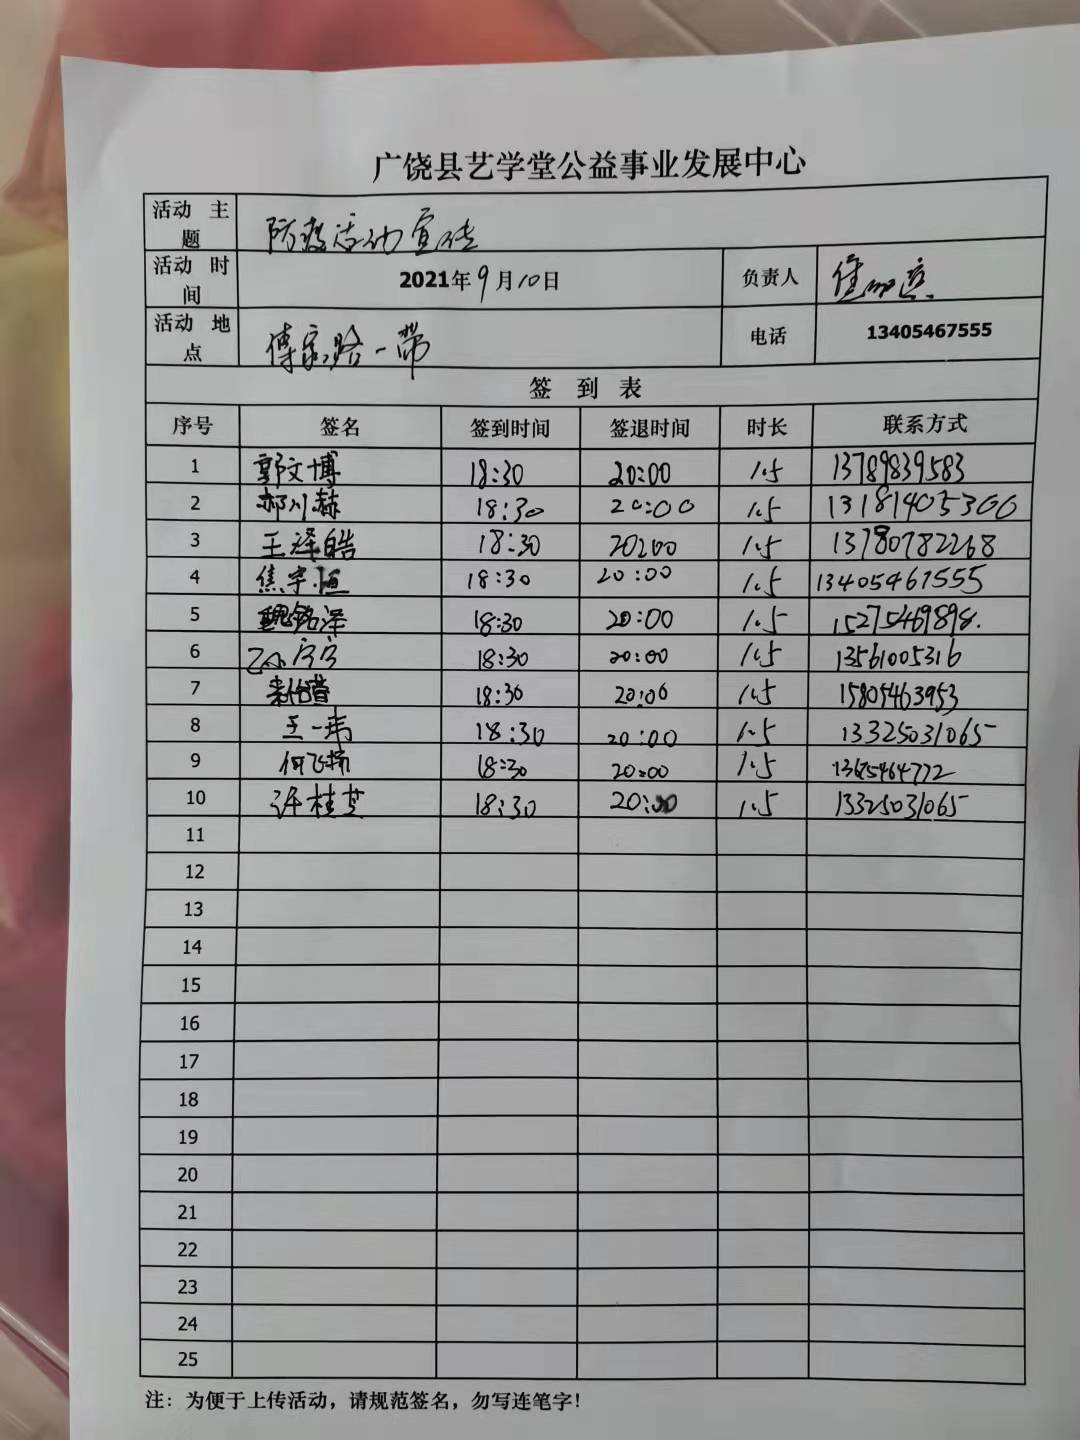 广饶县艺学堂公益事业发展中心
活动 主题 防疫活动宣传
活动 时间 2021年9月10日 负责人
活动 地点 傅家路一带 电话 13405467555
签 到 表
序号 签名 签到时间 签退时间 时长 联系方式
1 郭文博 18:30 20:00 1.5 13789839583
2 祁川赫 18:30 20:00 1.5 13181405300
3 王泽皓 18:30 20:00 1.5 13780782268
4 焦宇恒 18:30 20:00 1.5 13405467555
5 魏铭泽 18:30 20:00 1.5 15275469898.
6 孙宁宁 18:30 20:00 1.5 13561005316
7 18:30 20:00 1.5 15805463953
8 王一玮 18:30 20:00 1.5 13325031065
9 何飞扬 18:30 20:00 1.5 13675464772
10 许桂芝 18:30 20:00 1.5 13325031065
11
12
13
14
15
16
17
18
19
20
21
22
23
24
25
注：为便于上传活动，请规范签名，勿写连笔字！